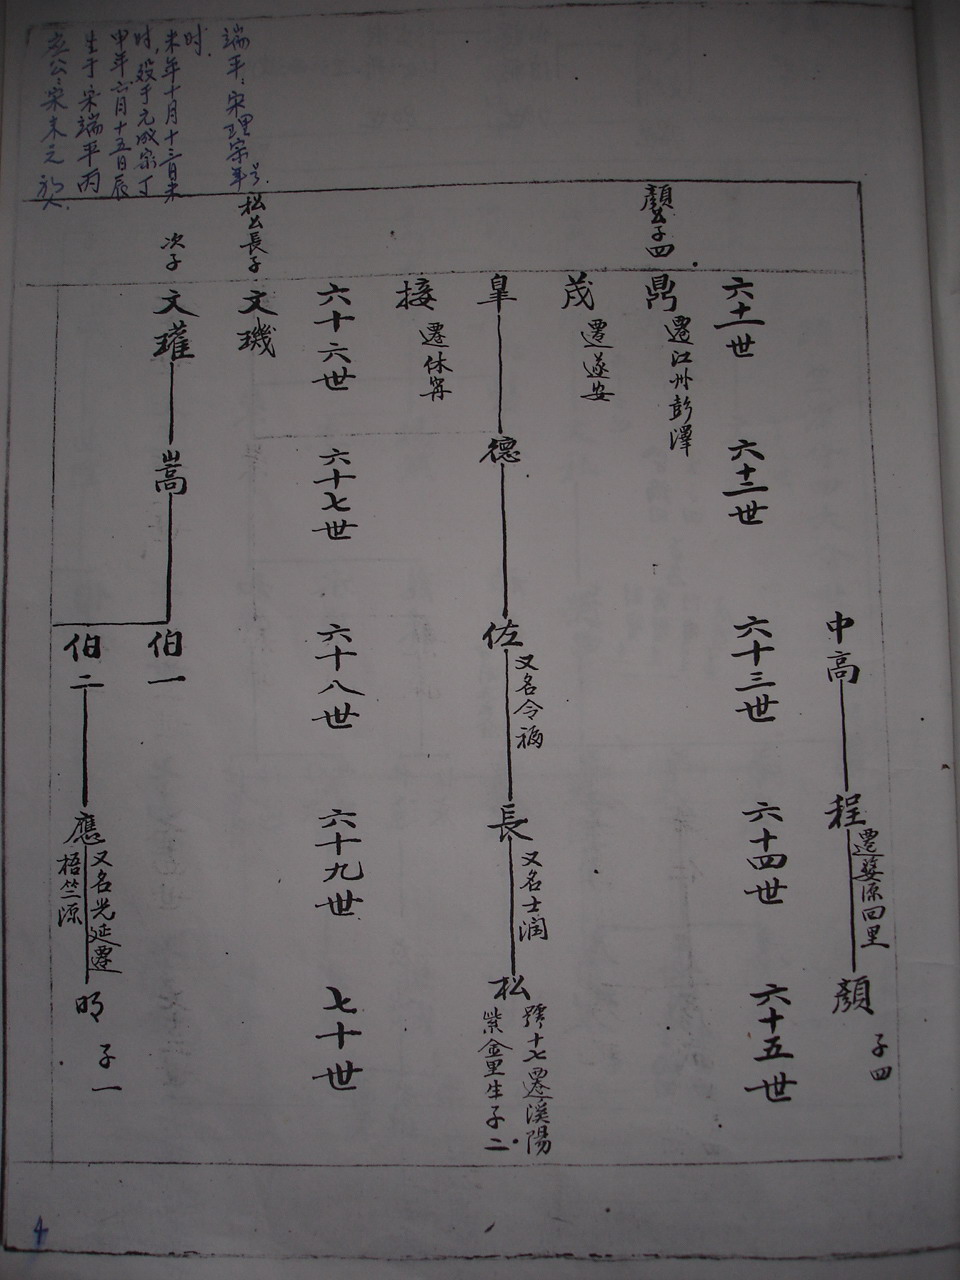 中高
程
遷婺源回里
顏
子四
六十一世
六十二世
六十三世
六十四世
六十五世
顏公子四
鼎
遷江州彭澤
茂
遷遂安
皐
德
佐
又名令福
長
又名士润
松
號十七遷溪陽
紫金里生子二
接
遷休甯
六十六世
六十七世
六十八世
六十九世
七十世
松公長子
文璣
次子
文瓘
嵩
伯一
伯二
應
又名光延遷
梧竺源
明
子一
端平：宋理宗年号
未年十月十三日未时
时，殁于元成宗丁
申年六月十五日辰
生于宋端平丙
公：宋末元初人.
4